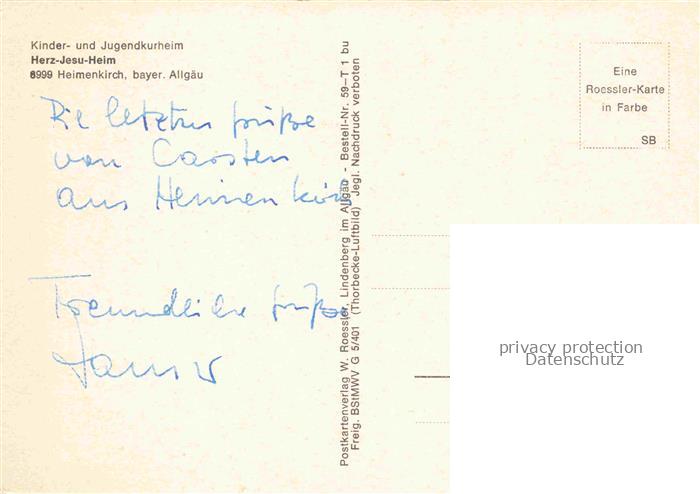 Kinder- und Jugendkurheim
Herz-Jesu-Heim
8999 Heimenkirch, bayer. Allgäu
Die letzten Grüße
von Carsten
aus Heimenkirch
Freundliche Grüße
Postkartenverlag W. Roessler, Lindenberg im Allgäu - Bestell-Nr. 59-T 1 bu
Freig. BStMWV G 5/401 (Thorbecke-Luftbild) Jegl. Nachdruck verboten
Eine
Roessler-Karte
in Farbe
SB
privacy protection
Datenschutz